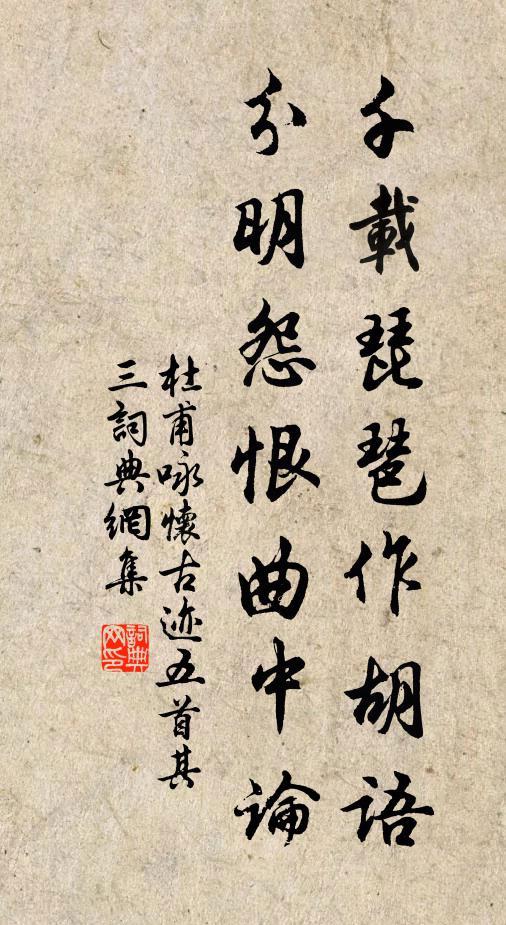 千載琵琶作胡語
分明怨恨曲中論
杜甫咏懷古迹五首其
三詞典網集
詞典
网印